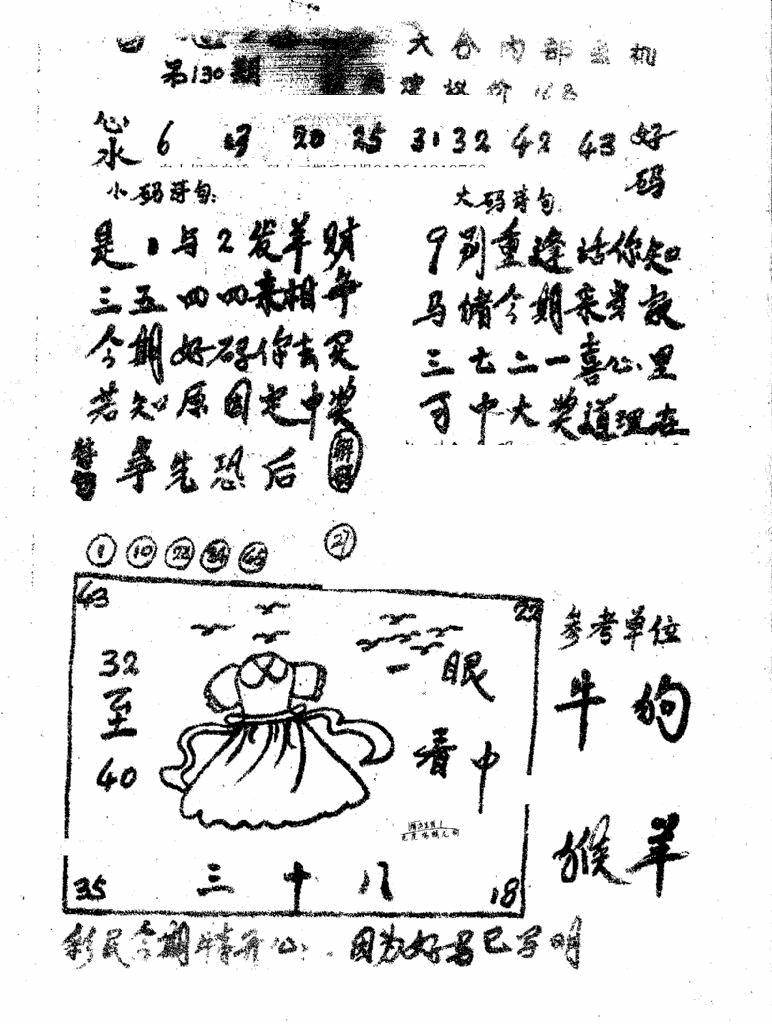 第130期
六合内部玄机
建议价
心水 6 20 25 31 32 42 43 好码
小码诗句:
是1与2发羊财
三五四四来相争
今期好码你去买
若知原因定中奖
大码诗句
9别重逢话你知
马借今期来发
三七二一喜心里
可中大奖道理在
争先恐后 解码
1 10 22 34 27
43 22
32至40
眼看中
35 三十八 18
参考单位
牛狗
猴羊
彩民今期情开心.因为好马已写明